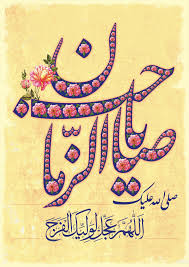 یا صاحب الزمان
صلی الله علیک
اللهم عجل لولیک الفرج